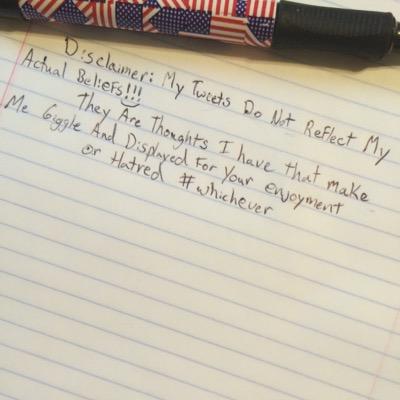 Disclaimer: My Tweets Do Not Reflect My
Actual Beliefs!!!
They Are Thoughts I have that make
Me Giggle And Displayed For Your enjoyment
or Hatred #whichever